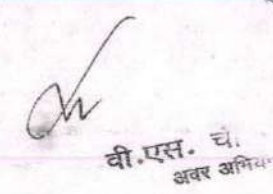 वी.एस. चं.
अवर अभिय